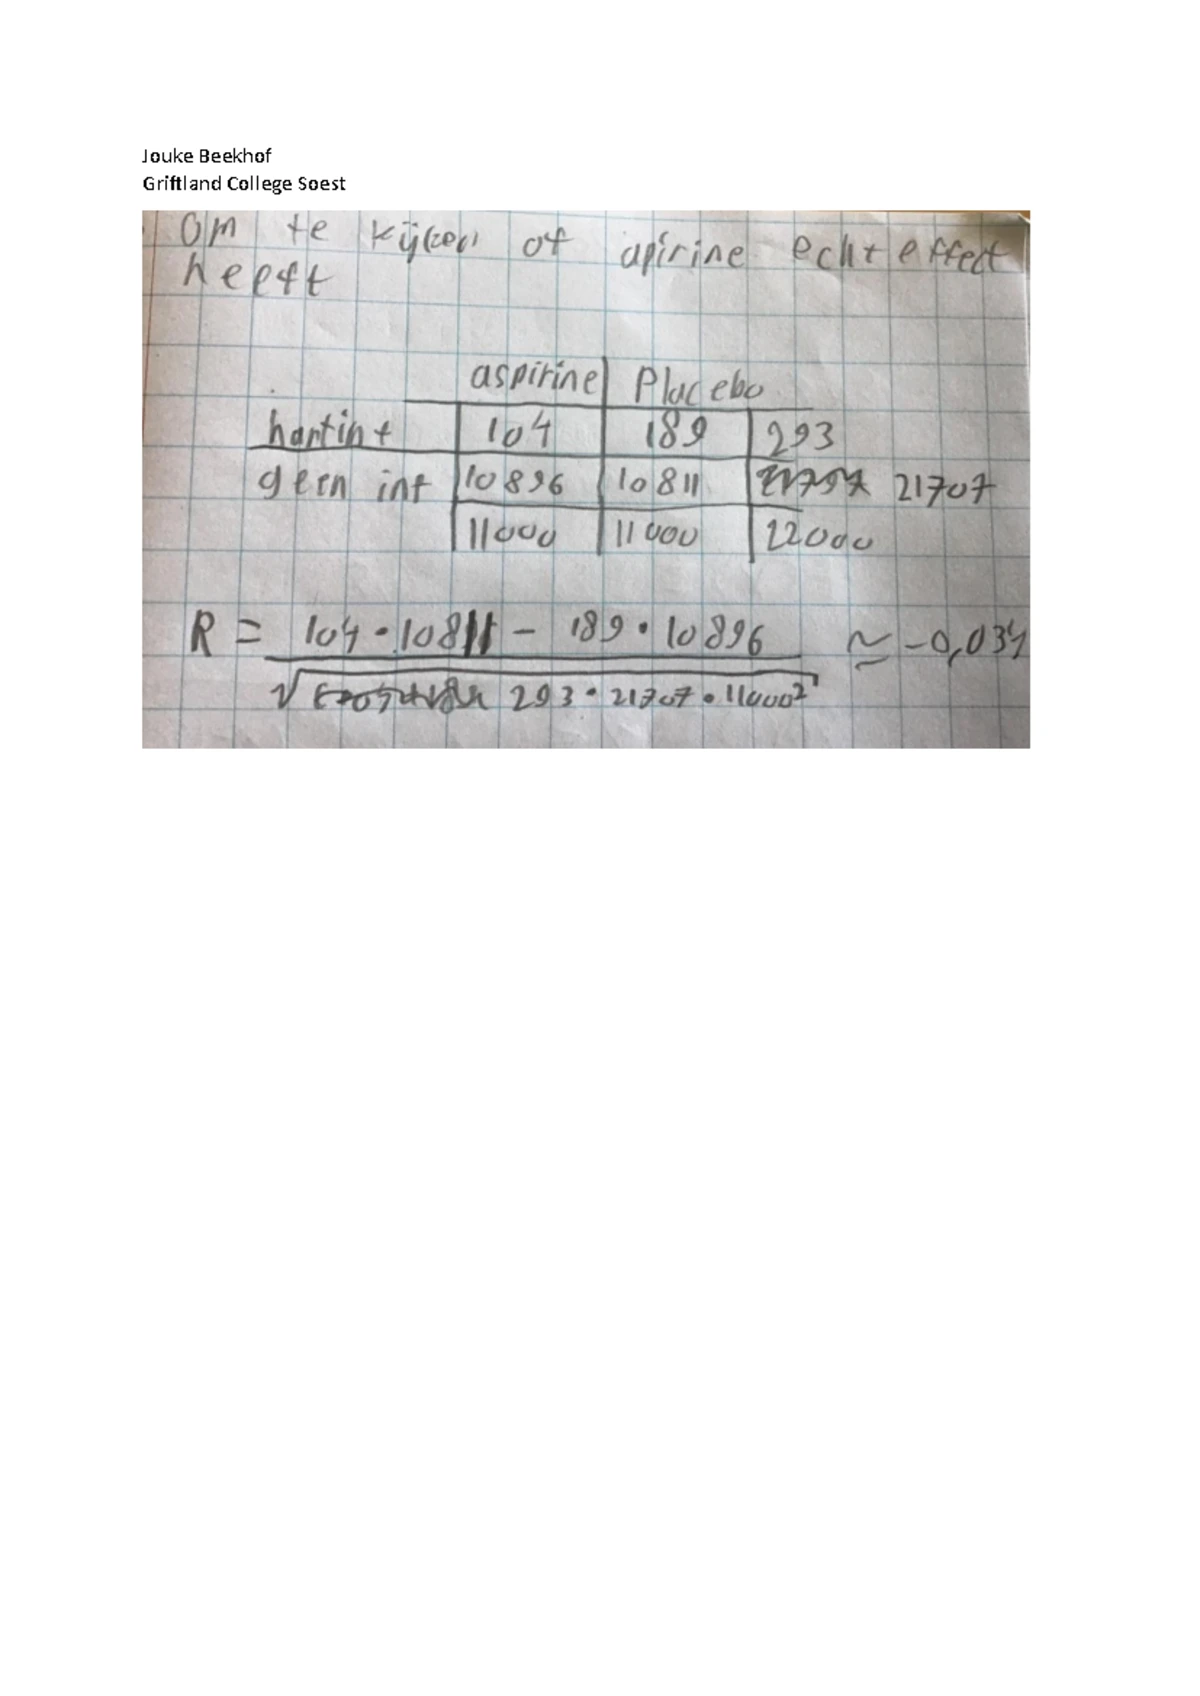 Jouke Beekhof
Griftland College Soest
Om te kijken of apirine echt effect
heeft
aspirine Placebo
hartint 104 189 293
geen int 10896 10811 21707
11000 11000 22000
R = 104 · 10811 - 189 · 10896 ≃ -0,034
√ 293 · 21707 · 11000²